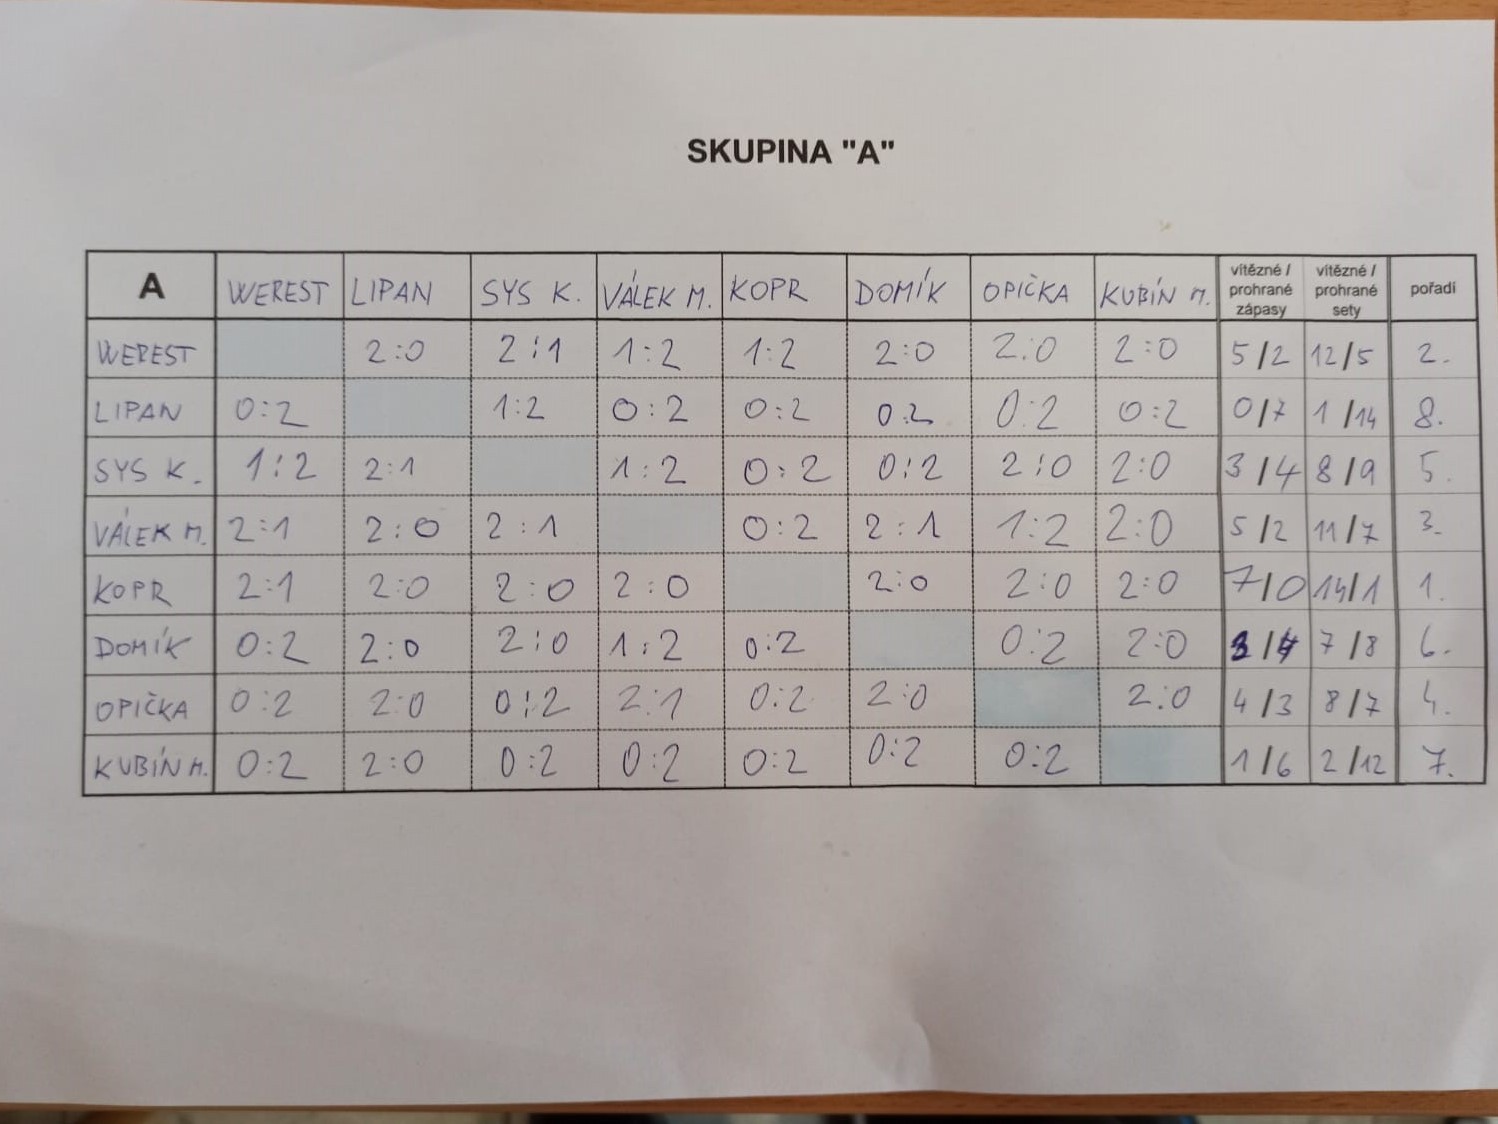 SKUPINA "A"
A WEREST LIPAN SYS K. VÁLEK M. KOPR DOMÍK OPIČKA KUBÍN M. vítězné / prohrané zápasy vítězné / prohrané sety pořadí
WEREST 2:0 2:1 1:2 1:2 2:0 2:0 2:0 5/2 12/5 2.
LIPAN 0:2 1:2 0:2 0:2 0:2 0:2 0:2 0/7 1/14 8.
SYS K. 1:2 2:1 1:2 0:2 0:2 2:0 2:0 3/4 8/9 5.
VÁLEK M. 2:1 2:0 2:1 0:2 2:1 1:2 2:0 5/2 11/7 3.
KOPR 2:1 2:0 2:0 2:0 2:0 2:0 2:0 7/0 14/1 1.
DOMÍK 0:2 2:0 2:0 1:2 0:2 0:2 2:0 3/4 7/8 6.
OPIČKA 0:2 2:0 0:2 2:1 0:2 2:0 2:0 4/3 8/7 4.
KUBÍN M. 0:2 2:0 0:2 0:2 0:2 0:2 0:2 1/6 2/12 7.